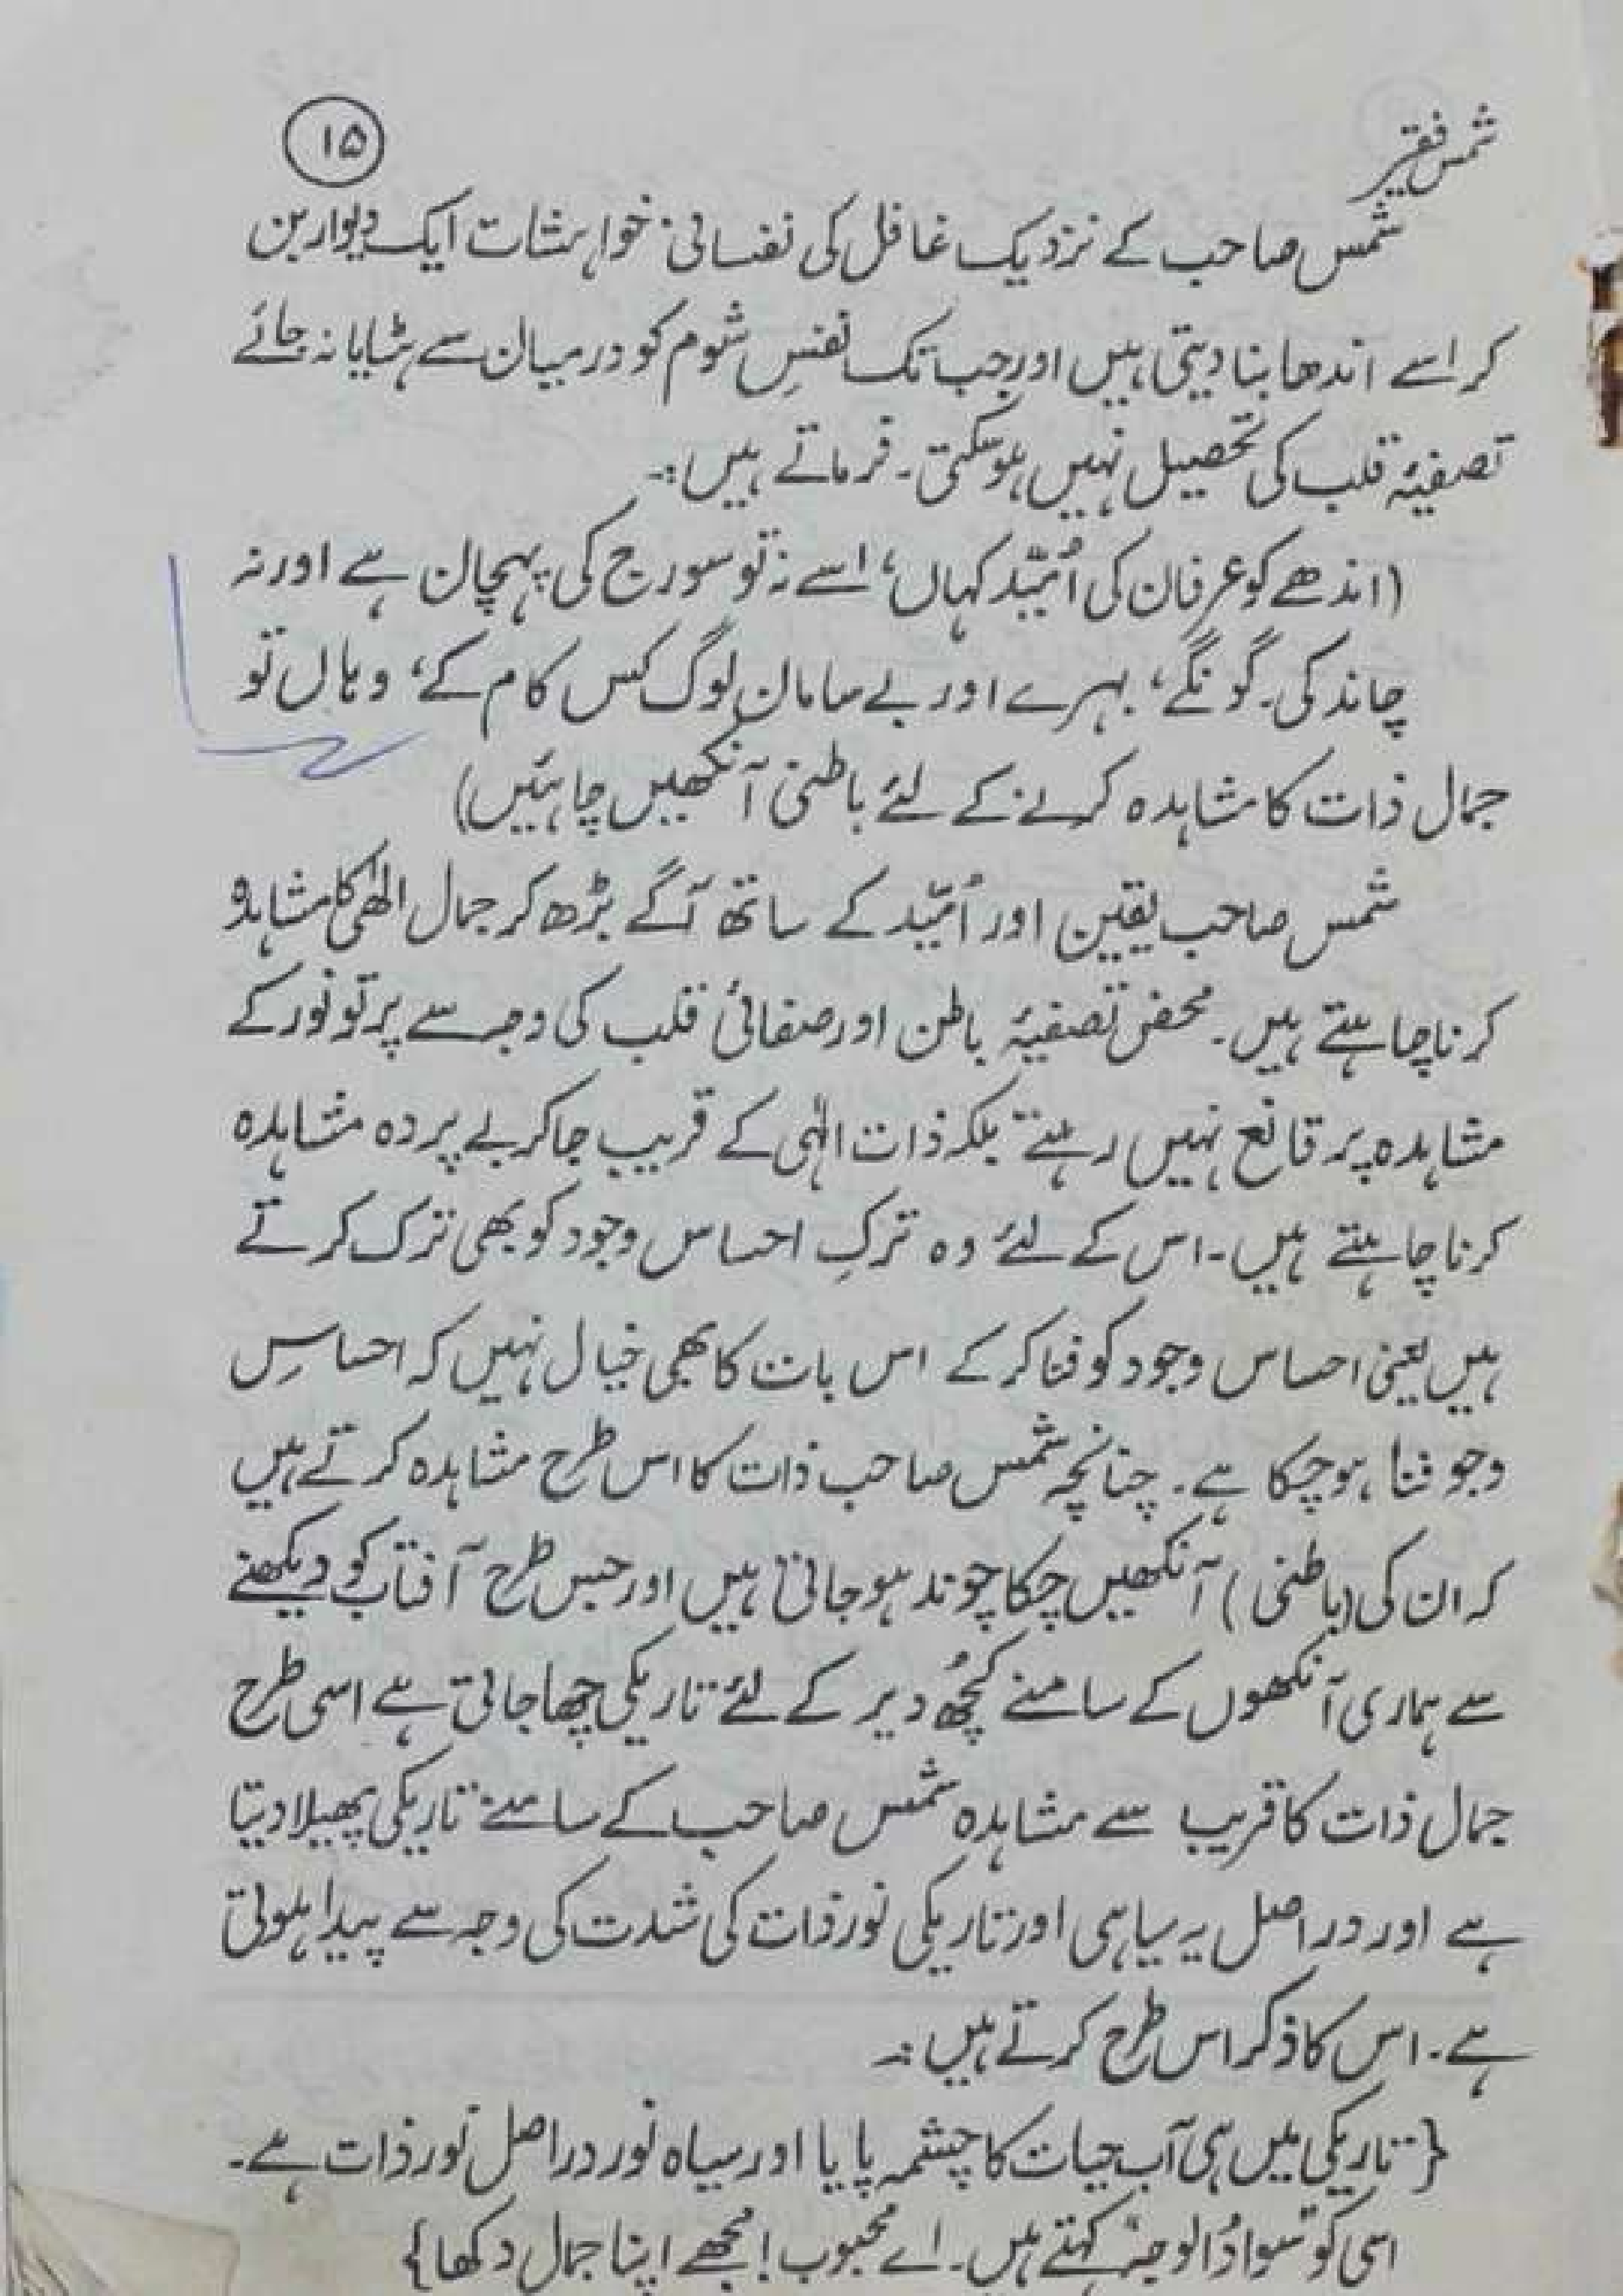 شمس فقیر
۱۵
شمس صاحب کے نزدیک غافل کی نفسانی خواہشات ایک دیوار بن
کر اسے اندھا بنا دیتی ہیں اور جب تک نفسِ شوم کو درمیان سے ہٹایا نہ جائے
تصفیۂ قلب کی تحصیل نہیں ہو سکتی۔ فرماتے ہیں:۔
(اندھے کو عرفان کی اُمیّد کہاں، اسے نہ تو سورج کی پہچان ہے اور نہ
چاند کی۔ گونگے، بہرے اور بے سامان لوگ کس کام کے، وہاں تو
جمال ذات کا مشاہدہ کرنے کے لئے باطنی آنکھیں چاہئیں)
شمس صاحب یقین اور اُمیّد کے ساتھ آگے بڑھ کر جمال الٰھی کا مشاہدہ
کرنا چاہتے ہیں۔ محض تصفیۂ باطن اور صفائی قلب کی وجہ سے پرتو نور کے
مشاہدہ پر قانع نہیں رہتے بلکہ ذات الٰہی کے قریب جا کر بے پردہ مشاہدہ
کرنا چاہتے ہیں۔ اس کے لئے وہ ترکِ احساس وجود کو بھی ترک کرتے
ہیں یعنی احساس وجود کو فنا کر کے اس بات کا بھی خیال نہیں کہ احساسِ
وجو فنا ہو چکا ہے۔ چنانچہ شمس صاحب ذات کا اس طرح مشاہدہ کرتے ہیں
کہ ان کی (باطنی) آنکھیں چکا چوند ہو جاتی ہیں اور جس طرح آفتاب کو دیکھنے
سے ہماری آنکھوں کے سامنے کچُھ دیر کے لئے تاریکی چھا جاتی ہے اسی طرح
جمال ذات کا قریب سے مشاہدہ شمس صاحب کے سامنے تاریکی پھیلا دیتا
ہے اور در اصل یہ سیاہی اور تاریکی نور ذات کی شدت کی وجہ سے پیدا ہوتی
ہے۔ اس کا ذکر اس طرح کرتے ہیں:۔
{تاریکی میں ہی آب حیات کا چشمہ پایا اور سیاہ نور در اصل نور ذات ہے۔
اسی کو سوادُ الوجہ کہتے ہیں۔ اے محبوب! مُجھے اپنا جمال دکھا}